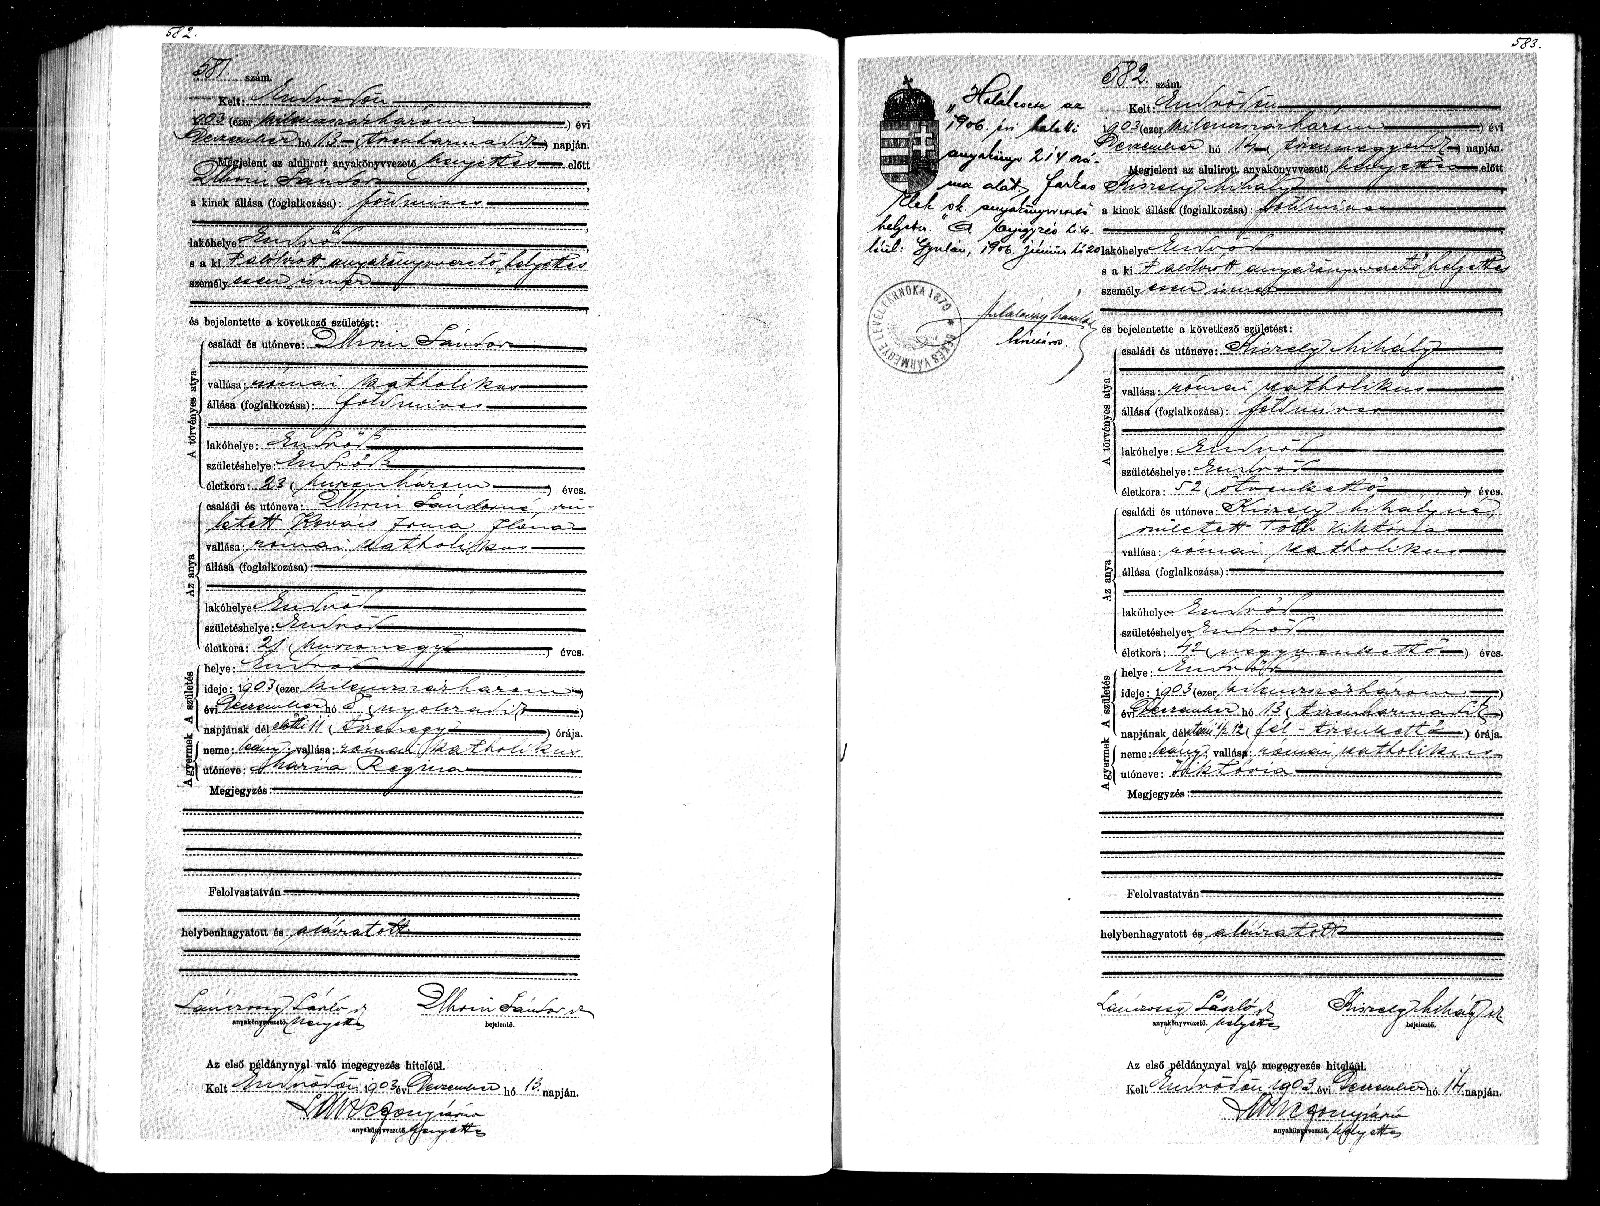 582.
581 szám.
Kelt: Endrődön
903 (ezer kilenczszázhárom) évi
Deczember hó 13 tizenharmadik napján.
Megjelent az alulirott anyakönyvvezető helyettes előtt
Sándor
a kinek állása (foglalkozása): földmives
lakóhelye: Endrőd
s a ki t alólirott anyakönyvvezető helyettes
személyesen ismer
és bejelentette a következő születést:
A törvényes atya
családi és utóneve: Sándor
vallása: római katholikus
állása (foglalkozása): földmives
lakóhelye: Endrőd
születéshelye: Endrőd
életkora: 23 (huszonhárom) éves.
Az anya
családi és utóneve: Sándorné, szü-
letett Kovács Ilona
vallása: római katholikus
állása (foglalkozása):
lakóhelye: Endrőd
születéshelye: Endrőd
életkora: 21 (huszonegy) éves.
A gyermek A születés
helye: Endrőd
ideje: 1903 (ezer kilenczszázhárom)
évi Deczember hó 8 (nyolczadik)
napjának dél előtti 11 (tizenegy) órája.
neme: leány; vallása: római katholikus
utóneve: Mária Regina
Megjegyzés:
Felolvastatván
helybenhagyatott és aláíratott
Lánczony László sk Sándor sk
anyakönyvvezető. helyettes bejelentő.
Az első példánynyal való megegyezés hiteléül.
Kelt Endrődön 1903 évi Deczember hó 13. napján.
anyakönyvvezető. helyettes
583.
„Halálesete az
1906. évi halotti
anyakönyv 214 szá-
ma alatt. Farkas
Elek sk. anyakönyvvezető
helyettes"
Gyulán, 1906 június hó 20
BÉKÉSVÁRMEGYE LEVÉLTÁRNOKA 1879
582 szám.
Kelt: Endrődön
1903 (ezer kilenczszázhárom) évi
Deczember hó 14 (tizennegyedik) napján.
Megjelent az alulirott anyakönyvvezető helyettes előtt
Kiszely Mihály
a kinek állása (foglalkozása): földmives
lakóhelye: Endrőd
s a ki t alólirott anyakönyvvezető helyettes
személyesen ismer
és bejelentette a következő születést:
A törvényes atya
családi és utóneve: Kiszely Mihály
vallása: római katholikus
állása (foglalkozása): földmives
lakóhelye: Endrőd
születéshelye: Endrőd
életkora: 52 (ötvenkettő) éves.
Az anya
családi és utóneve: Kiszely Mihályné,
született Tóth Viktória
vallása: római katholikus
állása (foglalkozása):
lakóhelye: Endrőd
születéshelye: Endrőd
életkora: 42 (negyvenkettő) éves.
A gyermek A születés
helye: Endrőd
ideje: 1903 (ezer kilenczszázhárom)
évi Deczember hó 13 (tizenharmadik)
napjának dél 1/2 12 (fél-tizenkettő) órája.
neme: leány; vallása: római katholikus
utóneve: Viktória
Megjegyzés:
Felolvastatván
helybenhagyatott és aláíratott
Lánczony László sk Kiszely Mihály sk
anyakönyvvezető. helyettes bejelentő.
Az első példánynyal való megegyezés hiteléül.
Kelt Endrődön 1903 évi Deczember hó 14 napján.
anyakönyvvezető. helyettes